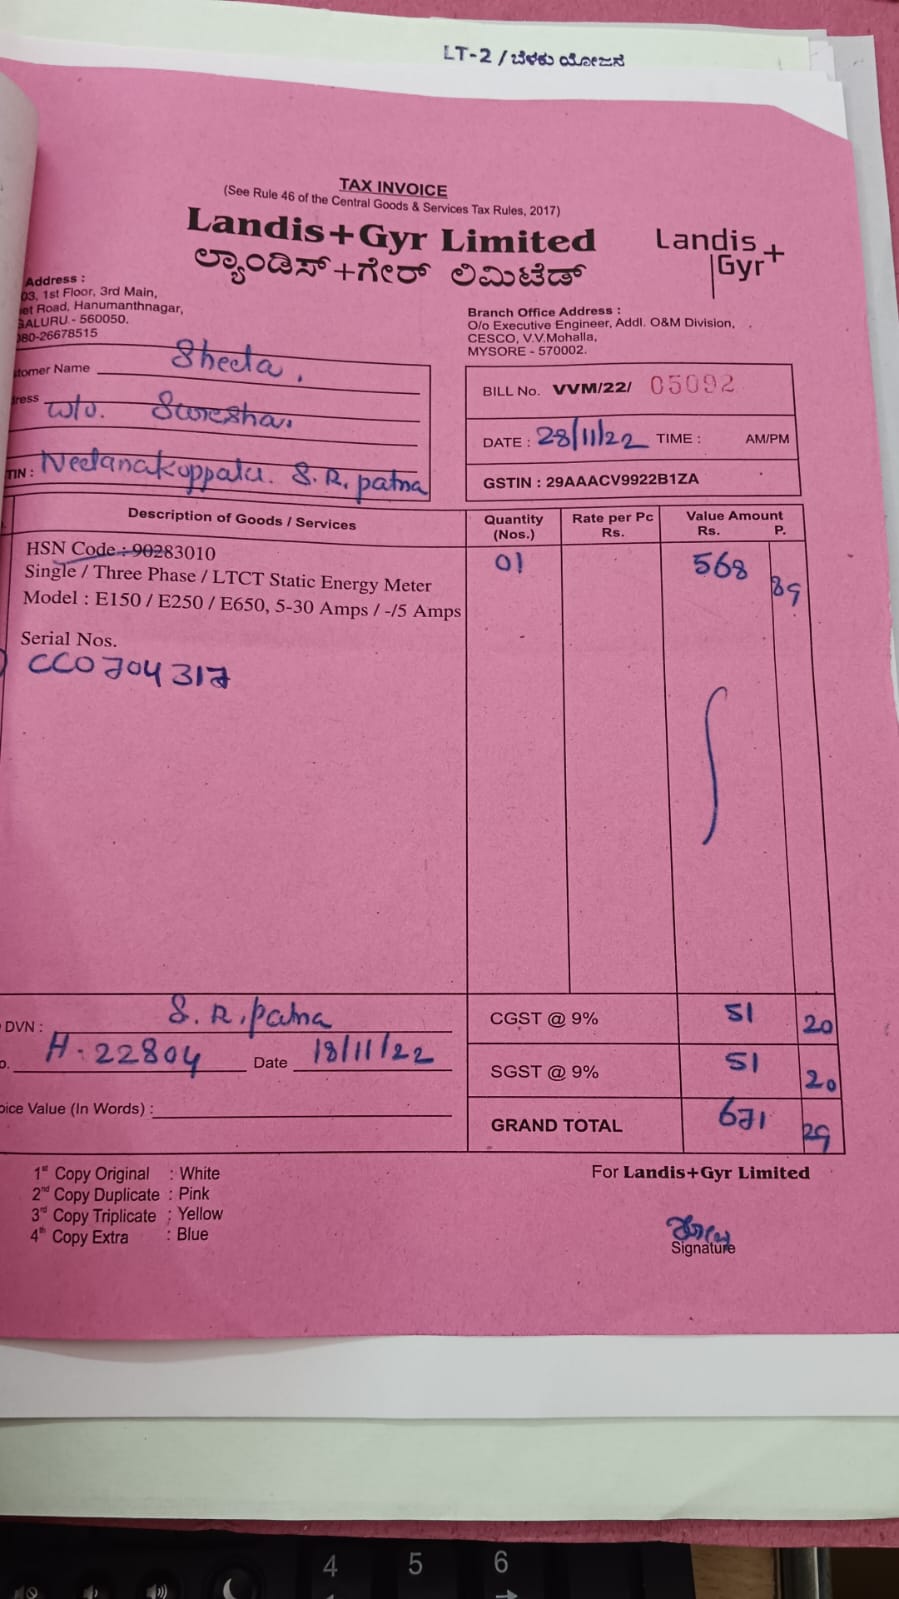 LT-2 / ಬೆಳಕು ಯೋಜನೆ
TAX INVOICE
(See Rule 46 of the Central Goods & Services Tax Rules, 2017)
Landis+Gyr Limited
ಲ್ಯಾಂಡಿಸ್+ಗೇರ್ ಲಿಮಿಟೆಡ್
Landis
Gyr+
Address :
03, 1st Floor, 3rd Main,
Road, Hanumanthnagar,
GALURU - 560050.
080-26678515
Branch Office Address :
O/o Executive Engineer, Addl. O&M Division,
CESCO, V.V.Mohalla,
MYSORE - 570002.
tomer Name Sheela,
ress w/o. Suresha.
TIN : Neelanakoppalu. S.R. patna
BILL No. VVM/22/ 05092
DATE : 28/11/22 TIME : AM/PM
GSTIN : 29AAACV9922B1ZA
Description of Goods / Services
Quantity (Nos.)
Rate per Pc Rs.
Value Amount Rs. P.
HSN Code : 90283010
Single / Three Phase / LTCT Static Energy Meter
Model : E150 / E250 / E650, 5-30 Amps / -/5 Amps
01
568 89
Serial Nos.
CC0704317
DVN : S.R. patna
o. H-22804 Date 18/11/22
oice Value (In Words) :
CGST @ 9% 51 20
SGST @ 9% 51 20
GRAND TOTAL 671 29
1st Copy Original : White
2nd Copy Duplicate : Pink
3rd Copy Triplicate : Yellow
4th Copy Extra : Blue
For Landis+Gyr Limited
Signature
4 5 6